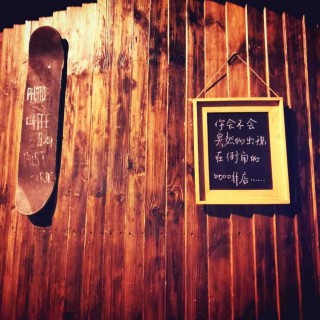 PHOTO
COFFEE
BOOK
POST
CARD
你会不会
突然的出现
在街角的
咖啡店……